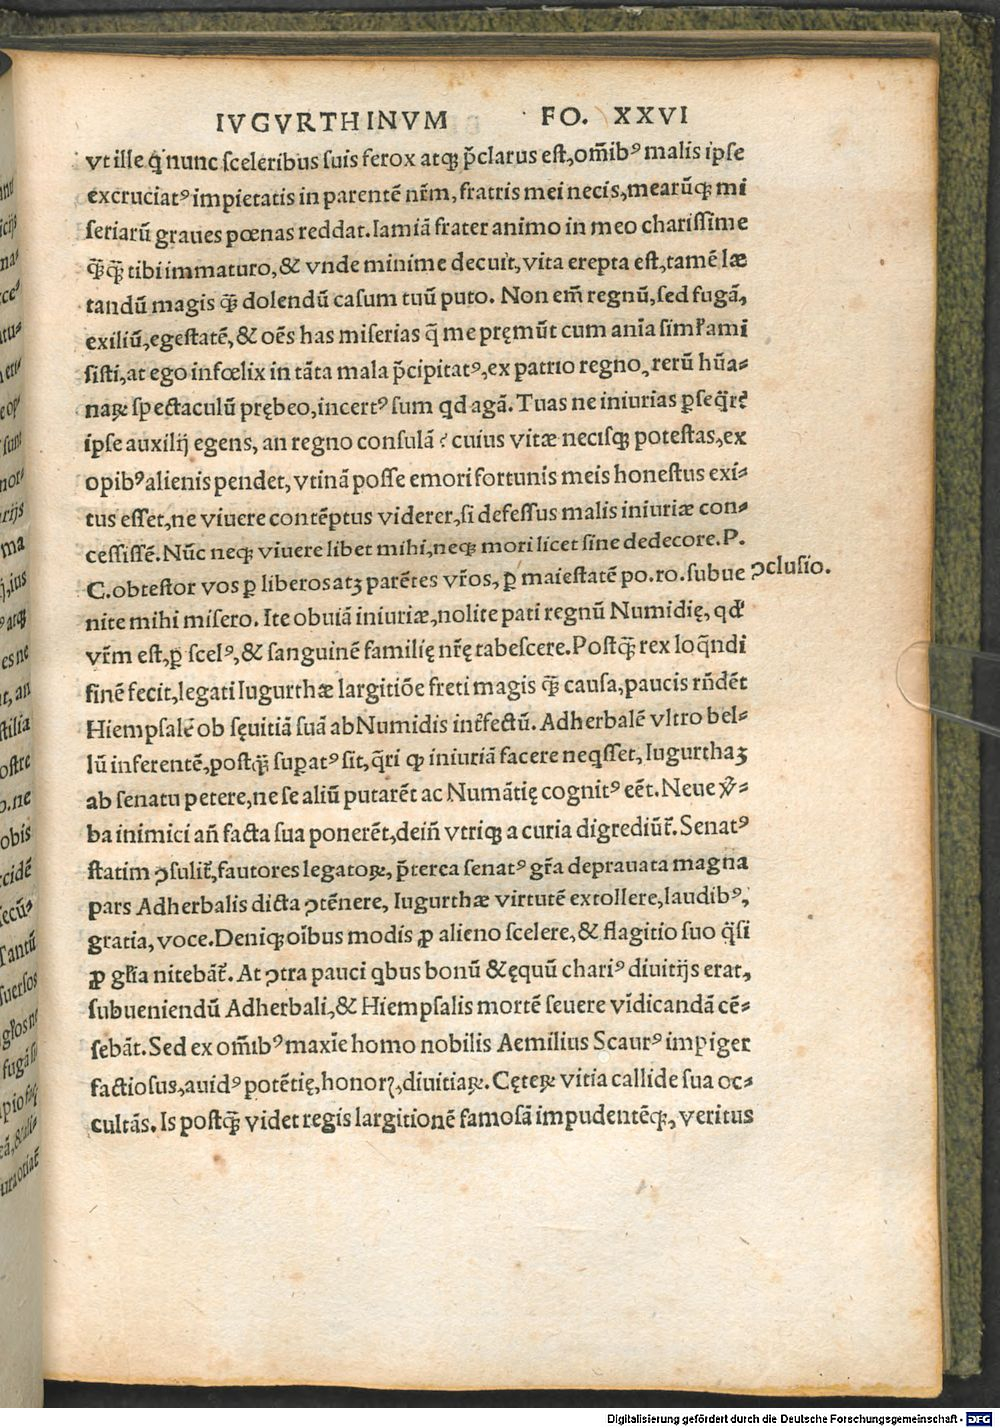 IVGVRTHINVM FO. XXVI
vt ille q̇ nunc sceleribus suis ferox atqꝫ p̄clarus est, om̄ibꝰ malis ipse
excruciatꝰ impietatis in parentē nr̄m, fratris mei necis, mearūqꝫ mi
seriarū graues pœnas reddat. Iamiā frater animo in meo charissime
q̄q̄ꝫ tibi immaturo, & vnde minime decuit, vita erepta est, tamē læ
tandū magis q̄ꝫ dolendū casum tuū puto. Non em̄ regnū, sed fugā,
exiliū, egestatē, & oēs has miserias q̄ me pręmūt cum anīa simr̄ ami
sisti, at ego infœlix in tāta mala p̄cipitatꝰ, ex patrio regno, rerū hūa-
naꝝ spectaculū prębeo, incertꝰ sum qd agā. Tuas ne iniurias ꝑseq̄r̄?
ipse auxilij egens, an regno consulā? cuius vitæ necisqꝫ potestas, ex
opibꝰ alienis pendet, vtinā posse emori fortunis meis honestus exi-
tus esset, ne viuere contēptus viderer, si defessus malis iniuriæ con-
cessissē. Nūc neqꝫ viuere libet mihi, neqꝫ mori licet sine dedecore. P.
C. obtestor vos ꝑ liberos atꝫ parētes vr̄os, ꝑ maiestatē po. ro. subue
ꝯclusio.
nite mihi misero. Ite obuiā iniuriæ, nolite pati regnū Numidię, qd̄
vr̄m est, ꝑ scelꝰ, & sanguinē familię nr̄ę tabescere. Postq̄ꝫ rex loq̄ndi
finē fecit, legati Iugurthæ largitiōe freti magis q̄ꝫ causa, paucis rn̄dēt
Hiempsalē ob sęuitiā suā ab Numidis int̄fectū. Adherbalē vltro bel-
lū inferentē, postq̄ꝫ suꝑatꝰ sit, q̄ri ꝙ iniuriā facere neq̇sset, Iugurthaꝫ
ab senatu petere, ne se aliū putarēt ac Numātię cognitꝰ eēt. Neue v̄-
ba inimici an̄ facta sua ponerēt, dein̄ vtriqꝫ a curia digrediūt̄. Senatꝰ
statim ꝯsulit̄, fautores legatoꝝ, p̄terea senatꝰ gr̄a deprauata magna
pars Adherbalis dicta ꝯtēnere, Iugurthæ virtutē extollere, laudibꝰ,
gratia, voce. Deniqꝫ oībus modis ꝓ alieno scelere, & flagitio suo q̄si
ꝓ gl̄ia nitebāt̄. At ꝯtra pauci q̇bus bonū & ęquū chariꝰ diuitijs erat,
subueniendū Adherbali, & Hiempsalis mortē seuere vīdicandā cē-
sebāt. Sed ex om̄ibꝰ maxīe homo nobilis Aemilius Scaurꝰ impiger
factiosus, auidꝰ potētię, honoꝝ, diuitiaꝝ. Cęteꝝ vitia callide sua oc-
cultās. Is postq̄ꝫ videt regis largitionē famosā impudentēqꝫ, veritus
Digitalisierung gefördert durch die Deutsche Forschungsgemeinschaft - DFG